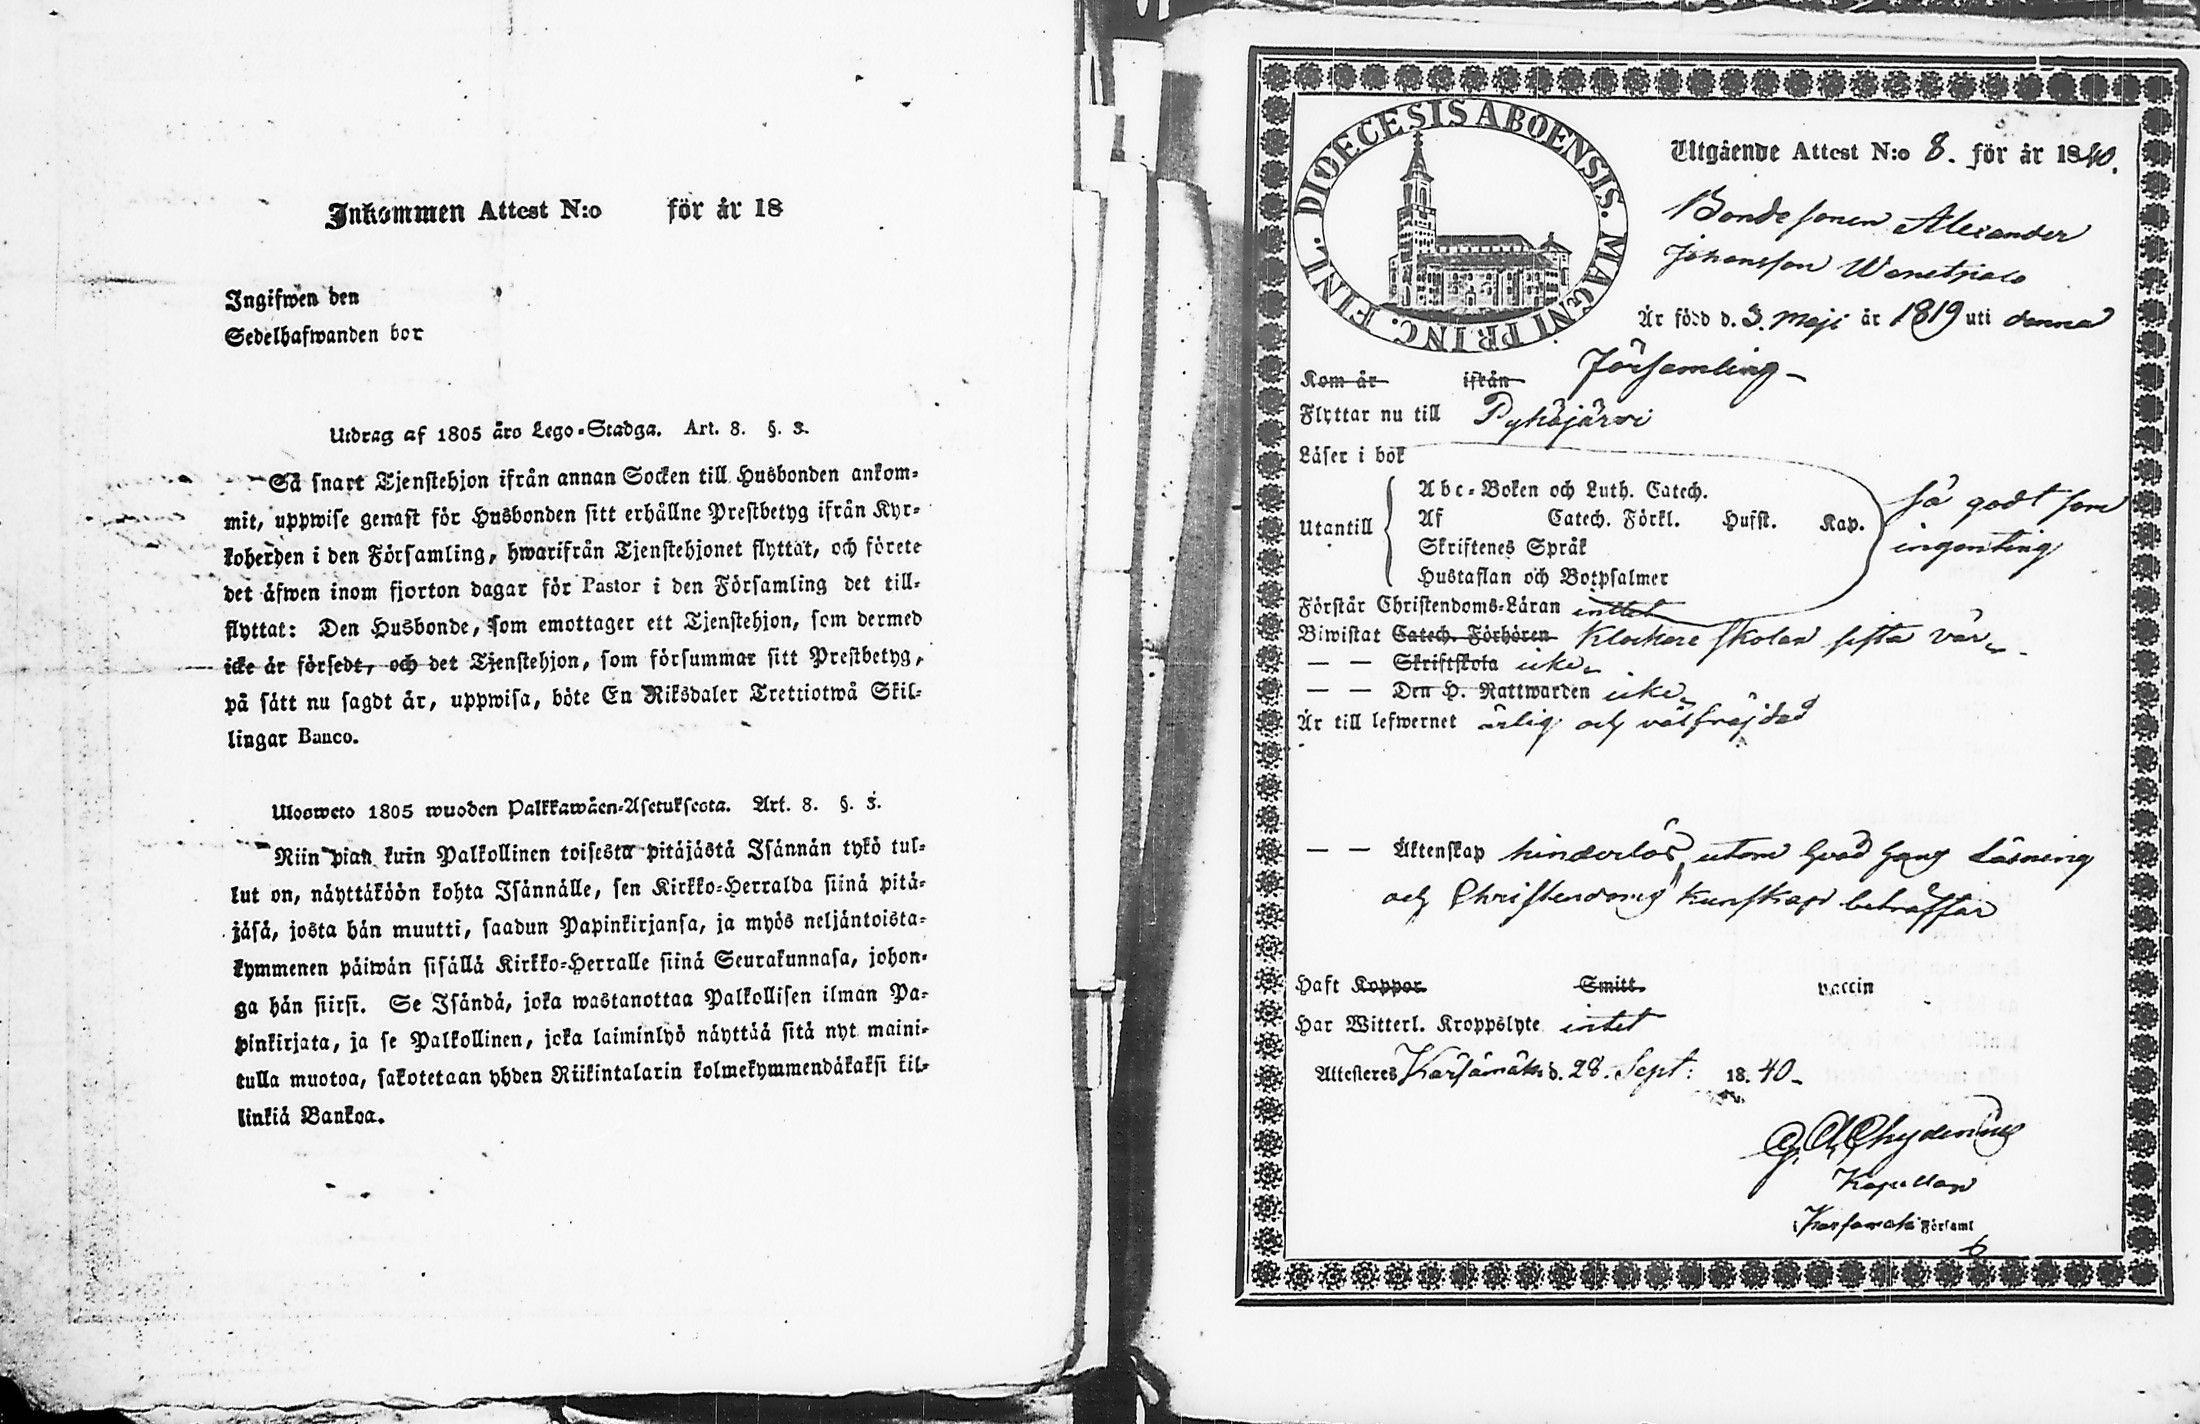 Inkommen Attest N:o för år 18
Ingifwen den
Sedelhafwanden bor
Utdrag af 1805 års Lego-Stadga. Art. 8. §. 3.
Så snart Tjenstehjon ifrån annan Socken till Husbonden ankom-
mit, uppwise genast för Husbonden sitt erhållne Prestbetyg ifrån Kyr-
koherden i den Församling, hwarifrån Tjenstehjonet flyttat, och förete
det äfwen inom fjorton dagar för Pastor i den Församling det till-
flyttat: Den Husbonde, som emottager ett Tjenstehjon, som dermed
icke är försedt, och det Tjenstehjon, som försummar sitt Prestbetyg,
på sätt nu sagdt är, uppwisa, böte En Riksdaler Trettiotwå Skil-
lingar Banco.
Ulosweto 1805 wuoden Palkkawäen-Asetuksesta. Art. 8. §. 3.
Niin pian kuin Palkollinen toisesta pitäjästä Isännän tykö tul-
lut on, näyttäköön kohta Isännälle, sen Kirkko-Herralda siinä pitä-
jäsä, josta hän muutti, saadun Papinkirjansa, ja myös neljäntoista-
kymmenen päiwän sisällä Kirkko-Herralle siinä Seurakunnasa, johon-
ga hän siirsi. Se Isändä, joka wastanottaa Palkollisen ilman Pa-
pinkirjata, ja se Palkollinen, joka laiminlyö näyttää sitä nyt maini-
tulla muotoa, sakotetaan yhden Riikintalarin kolmekymmendäkaksi kil-
linkiä Bankoa.
DIOECESIS ABOENSIS. MAGNI PRINC. FINL.
Utgående Attest N:o 8. för år 1840.
Bondesonen Alexander
Johansson Wenetjoki
Är född d. 3. Maji år 1819 uti denna
Församling -
Kom år ifrån
Flyttar nu till Pyhäjärwi
Läser i bok
Abc-Boken och Luth. Catech.
Utantill Af Catech. Förkl. Husst. Kap.
Skriftenes Språk
Hustaflan och Botpsalmer
så godt som
ingenting
Förstår Christendoms-Läran intet
Biwistat Catech. Förhören Klockare skolan sista vår
— — Skriftskola icke
— — Den H. Nattwarden icke
Är till lefwernet ärlig och välfräjdad
— — Äktenskap hinderlös, utom hvad hans läsning
och Christendoms kunskap beträffar
Haft Koppor Smitt. vaccin
Har Witterl. Kroppslyte intet
Attesteres Kärsämäki d. 28. Sept: 18.40-
G. A. Chydenius
Kapellan
i Kärsämäki Församl